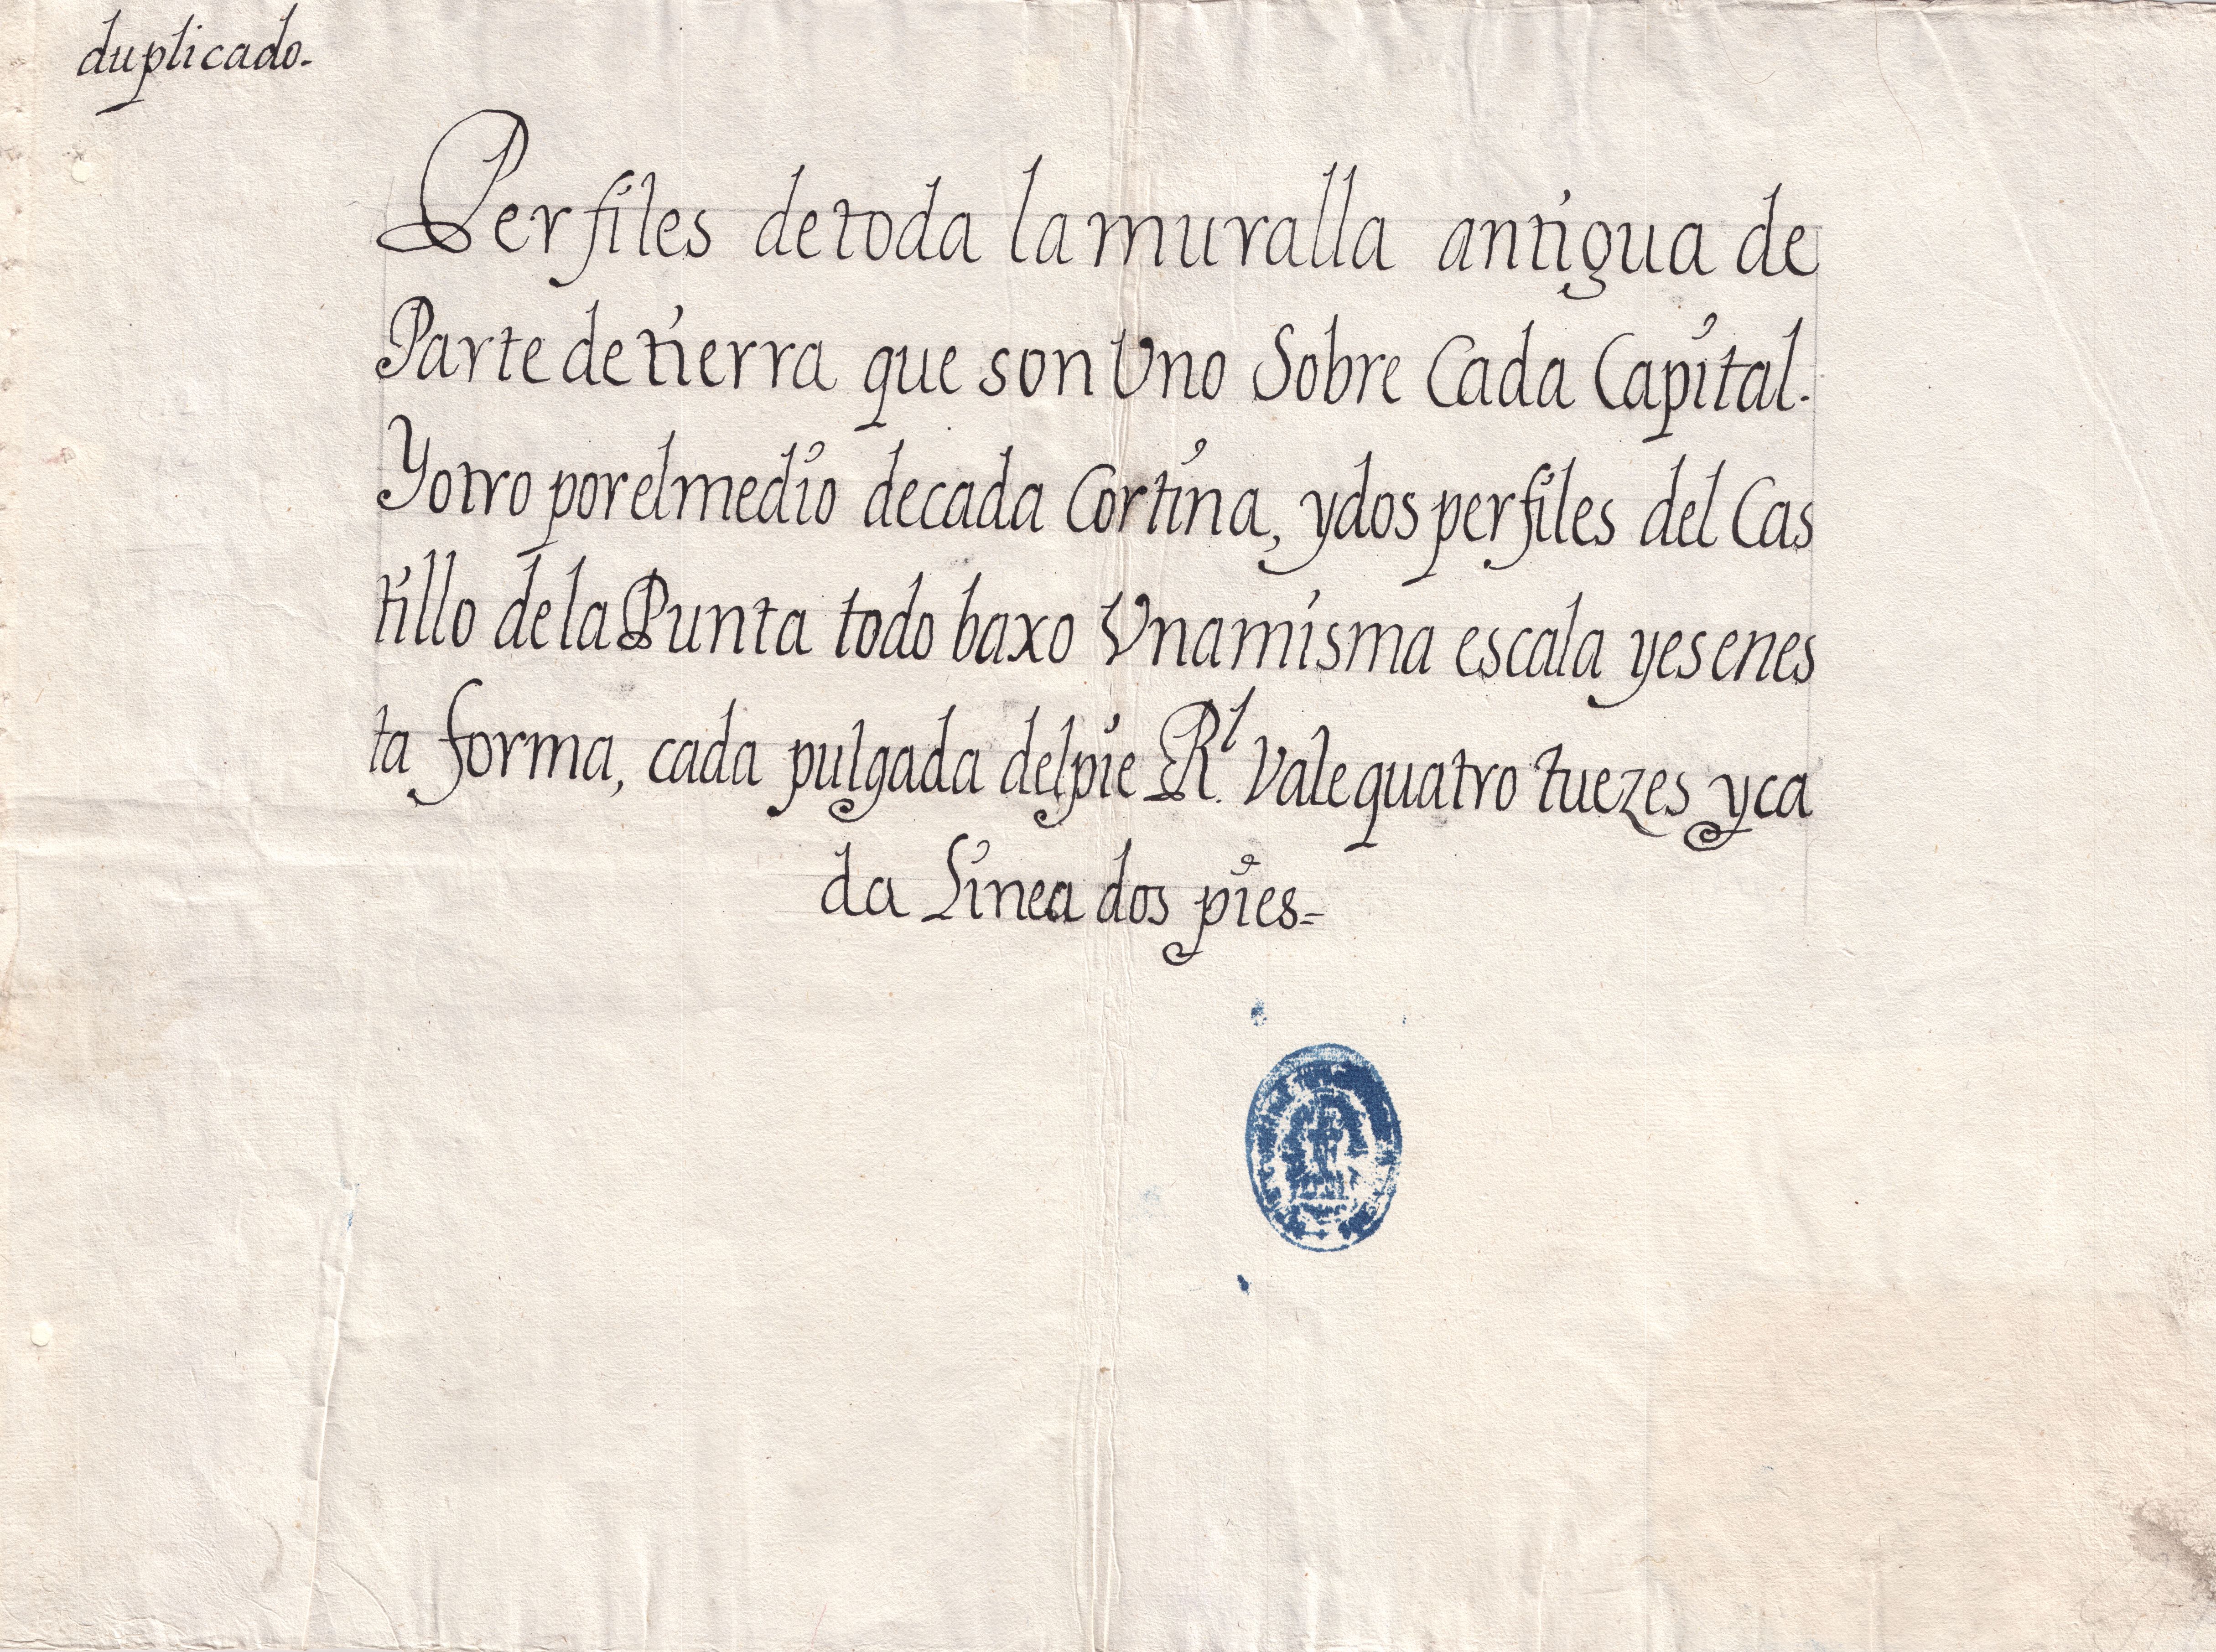 duplicado.
Perfiles de toda la muralla antigua de
Parte de tierra que son Uno Sobre Cada Capital.
Y otro por el medio de cada Cortina, y dos perfiles del Cas
tillo de la Punta todo baxo Una misma escala y es en es
ta forma, cada pulgada del pie Rl. Vale quatro tuezes y ca
da Linea dos pies=